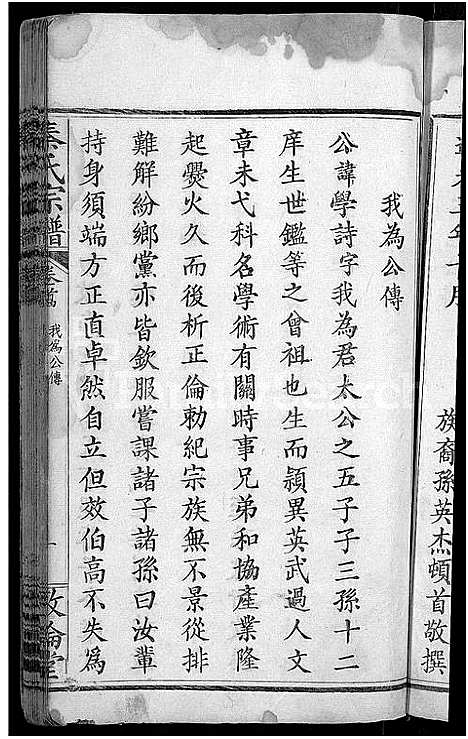 族裔孫英杰頓首敬撰
我為公傳
公諱學詩字我為君太公之五子子三孫十二
庠生世鑑等之曾祖也生而頴異英武過人文
章未弋科名學術有關時事兄弟和協產業隆
起爨火久而後析正倫勅紀宗族無不景從排
難解紛鄉黨亦皆欽服嘗課諸子諸孫曰汝輩
持身須端方正直卓然自立但效伯高不失為
秦氏宗譜 卷首 我為公傳 一 敦倫堂